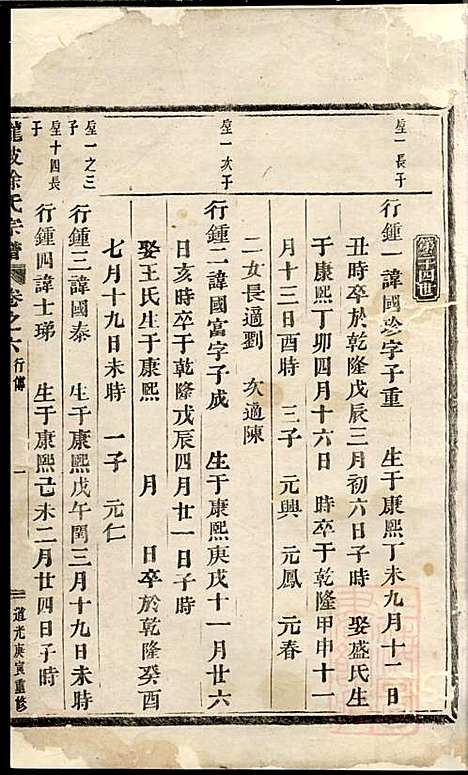 第二十四世
星一長子
行鍾一諱國珍字子重 生于康熙丁未九月十一日
丑時卒於乾隆戊辰三月初六日子時 娶盛氏生
于康熙丁卯四月十六日 時卒于乾隆甲申十一
月十三日酉時 三子 元興 元鳳 元春
二女長適劉 次適陳
星一次子
行鍾二諱國富字子成 生于康熙庚戌十一月廿六
日亥時卒于乾隆戊辰四月廿一日子時
娶王氏生于康熙 月 日卒於乾隆癸酉
七月十九日未時 一子 元仁
星一之三子
行鍾三諱國泰 生于康熙戊午閏三月十九日未時
星十四長子
行鍾四諱士瑅 生于康熙己未二月廿四日子時
龍坡徐氏宗譜 卷之六 行傳 一 道光庚寅重修